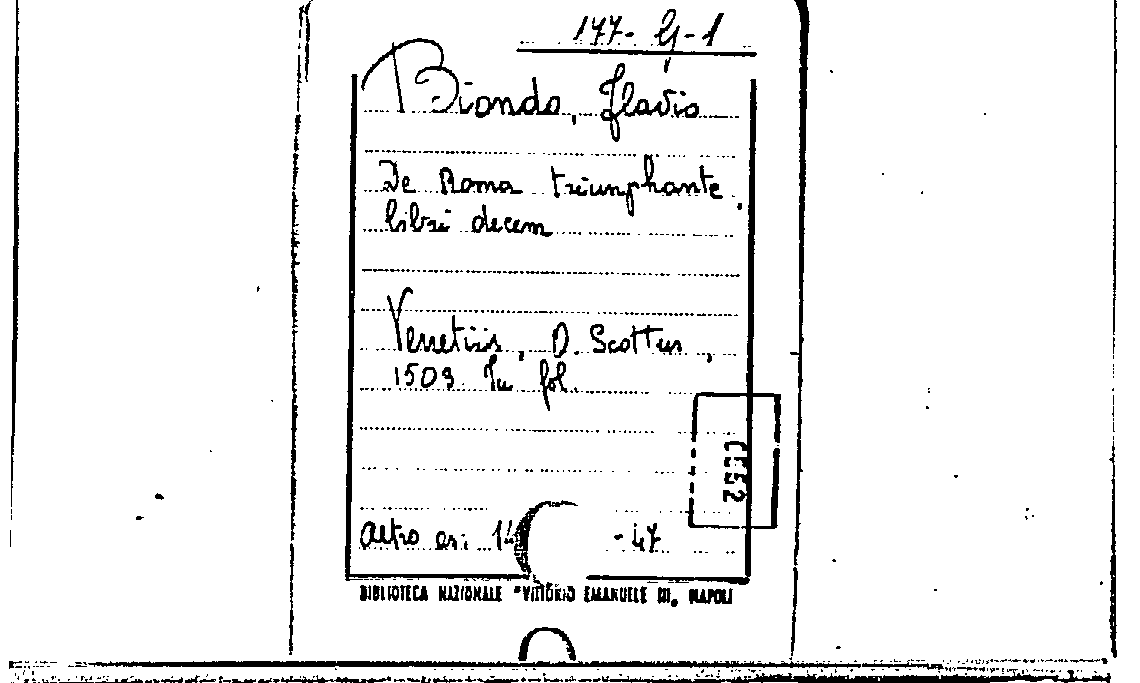 177- G-1
Biondo, Flavio
De Roma triumphante,
libri decem
Venetiis, D. Scottus,
1503. In fol.
CE52
altro es: 14 -47
BIBLIOTECA NAZIONALE "VITTORIO EMANUELE III, NAPOLI